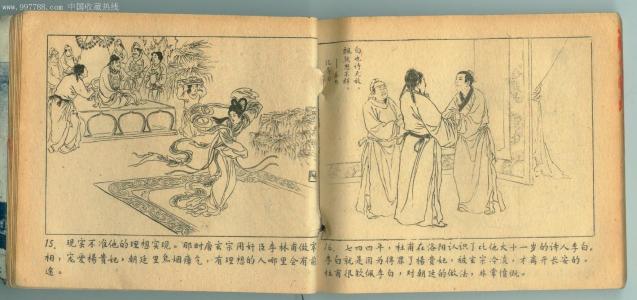 www.997788.com 中国收藏热线
白也诗无敌，
飘然思不群。
15. 现实不准他的理想实现。那时唐玄宗用奸臣李林甫做宰
相，宠爱楊貴妃，朝廷里烏烟瘴气，有理想的人哪里会有前
途。
16. 七四四年，杜甫在洛阳认识了比他大十一岁的诗人李白。
李白就是因为得罪了楊貴妃，被玄宗冷淡，才离开长安的。
杜甫很欽佩李白，对朝廷的做法，非常憤慨。